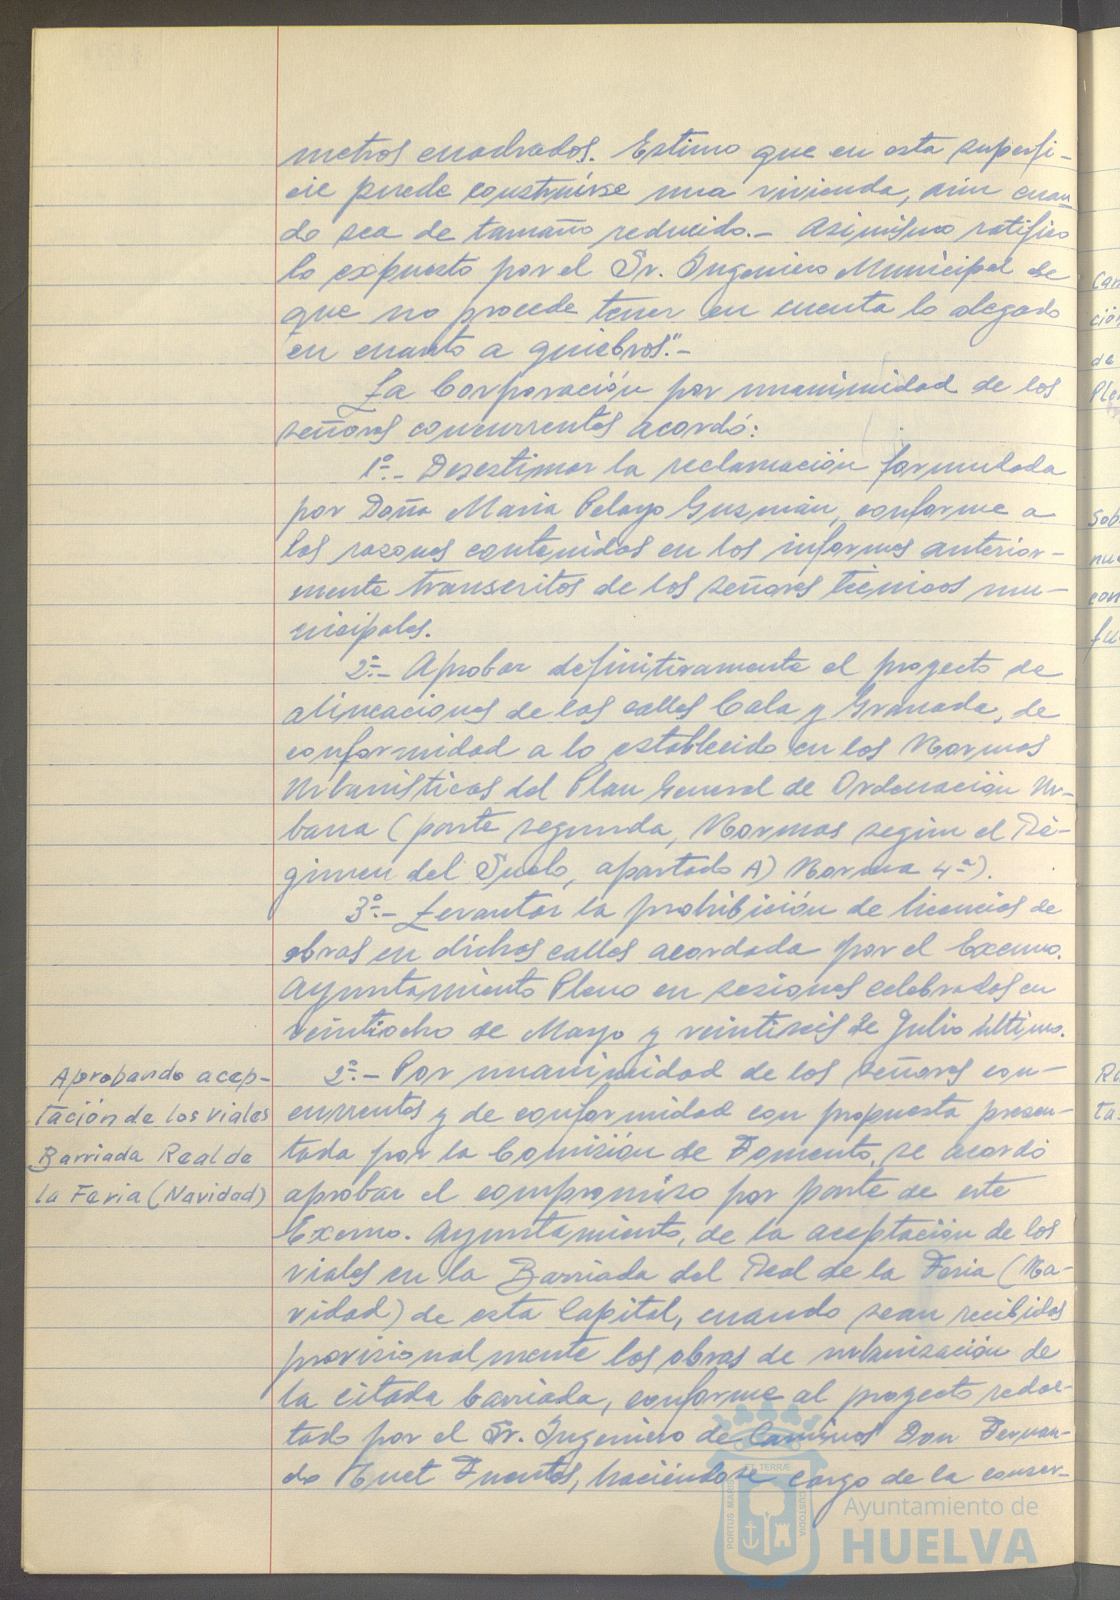 metros cuadrados. Estimo que en esta superfi-
cie puede construirse una vivienda, aún cuan-
do sea de tamaño reducido.- Asimismo ratifico
lo expuesto por el Sr. Ingeniero Municipal de
que no procede tener en cuenta lo alegado
en cuanto a quiebros".-
La Corporación por unanimidad de los
señores concurrentes acordó:
1º.- Desestimar la reclamación formulada
por Doña Maria Pelayo Guzmán, conforme a
las razones contenidas en los informes anterior-
mente transcritos de los señores técnicos mu-
nicipales.
2º.- Aprobar definitivamente el proyecto de
alineaciones de las calles Cala y Granada, de
conformidad a lo establecido en las Normas
Urbanísticas del Plan General de Ordenación Ur-
bana (parte segunda, Normas según el Ré-
gimen del Suelo, apartado A) Norma 4ª).
3º.- Levantar la prohibición de licencias de
obras en dichas calles acordada por el Excmo.
Ayuntamiento Pleno en sesiones celebradas en
veintiocho de Mayo y veintiseis de Julio último.
Aprobando acep-
tación de los viales
Barriada Real de
la Feria (Navidad)
2º.- Por unanimidad de los señores con-
currentes y de conformidad con propuesta presen-
tada por la Comisión de Fomento, se acordó
aprobar el compromiso por parte de este
Excmo. Ayuntamiento, de la aceptación de los
viales en la Barriada del Real de la Feria (Na-
vidad) de esta Capital, cuando sean recibidas
provisionalmente las obras de urbanización de
la citada barriada, conforme al proyecto redac-
tado por el Sr. Ingeniero de Caminos Don Fernan-
do Fuentes, haciéndose cargo de la conser-
PORTUS MARIS ET TERRÆ CUSTODIA
Ayuntamiento de
HUELVA